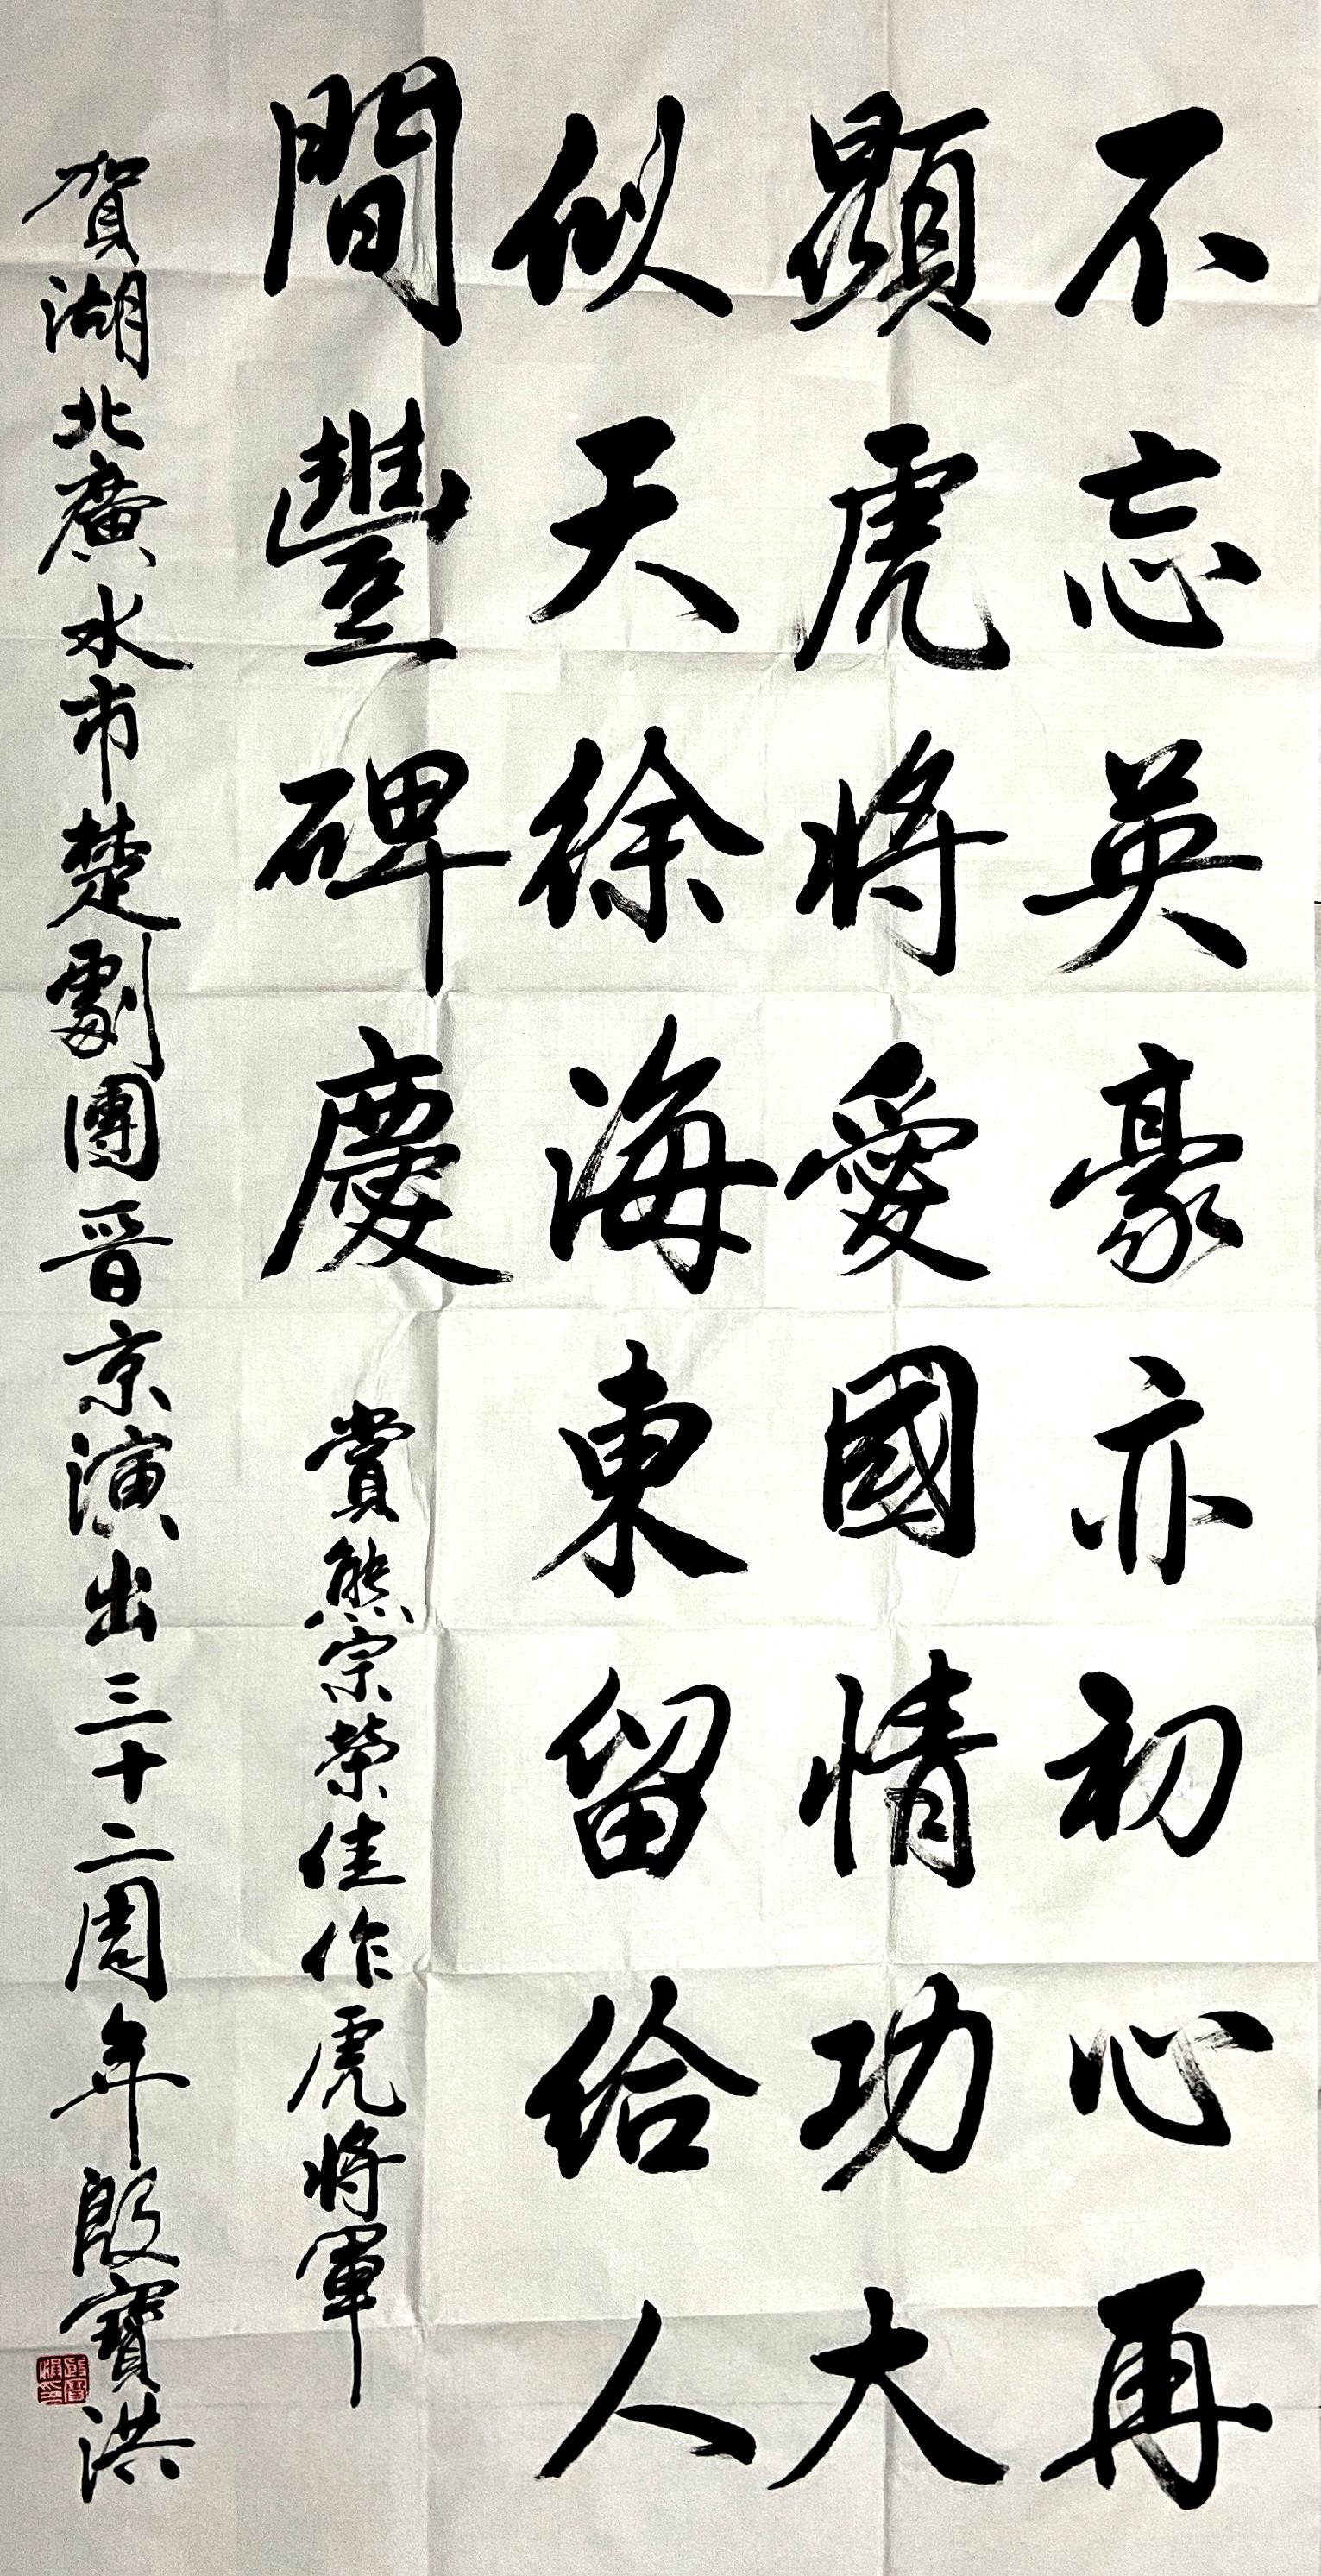 不忘英豪亦初心再
顯虎將愛國情功大
似天徐海東留給人
間豐碑慶
賞熊宗榮佳作虎將軍
賀湖北廣水市楚劇團晉京演出三十二周年殷寶洪